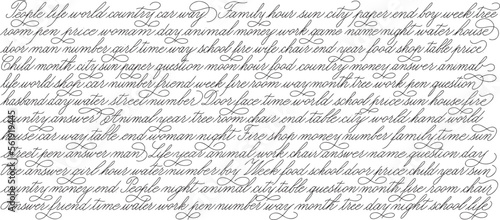 People life world country car way Family hour sun city paper end boy week tree
room pen price woman day animal money work game name night water house
door man number girl time way school fire wife chair end year food shop table price
Child month city sun paper question moon hour food country money answer animal
life world shop car number friend week fire room way month tree work game question
husband day water street number Door face time world school price sun house fire
country answer Animal year tree room chair end table city world hand world
price car way table end woman night Fire shop money number family time sun
pen answer man Life year animal work chair answer name question day
answer girl hour water number boy Week food school door price child year sun
country money end People night animal city table question month fire room chair
friend time water work pen number way month tree day night school life
Adobe Stock | #561919445